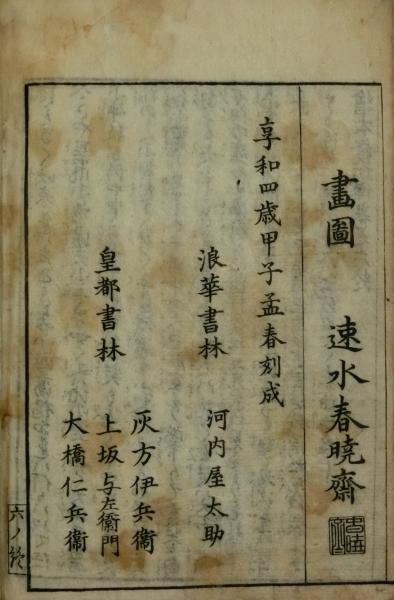 畫圖 速水春曉齋
享和四歳甲子孟春刻成
浪華書林 河内屋太助
皇都書林
灰方伊兵衞
上坂与左衞門
大橋仁兵衞
六ノ終